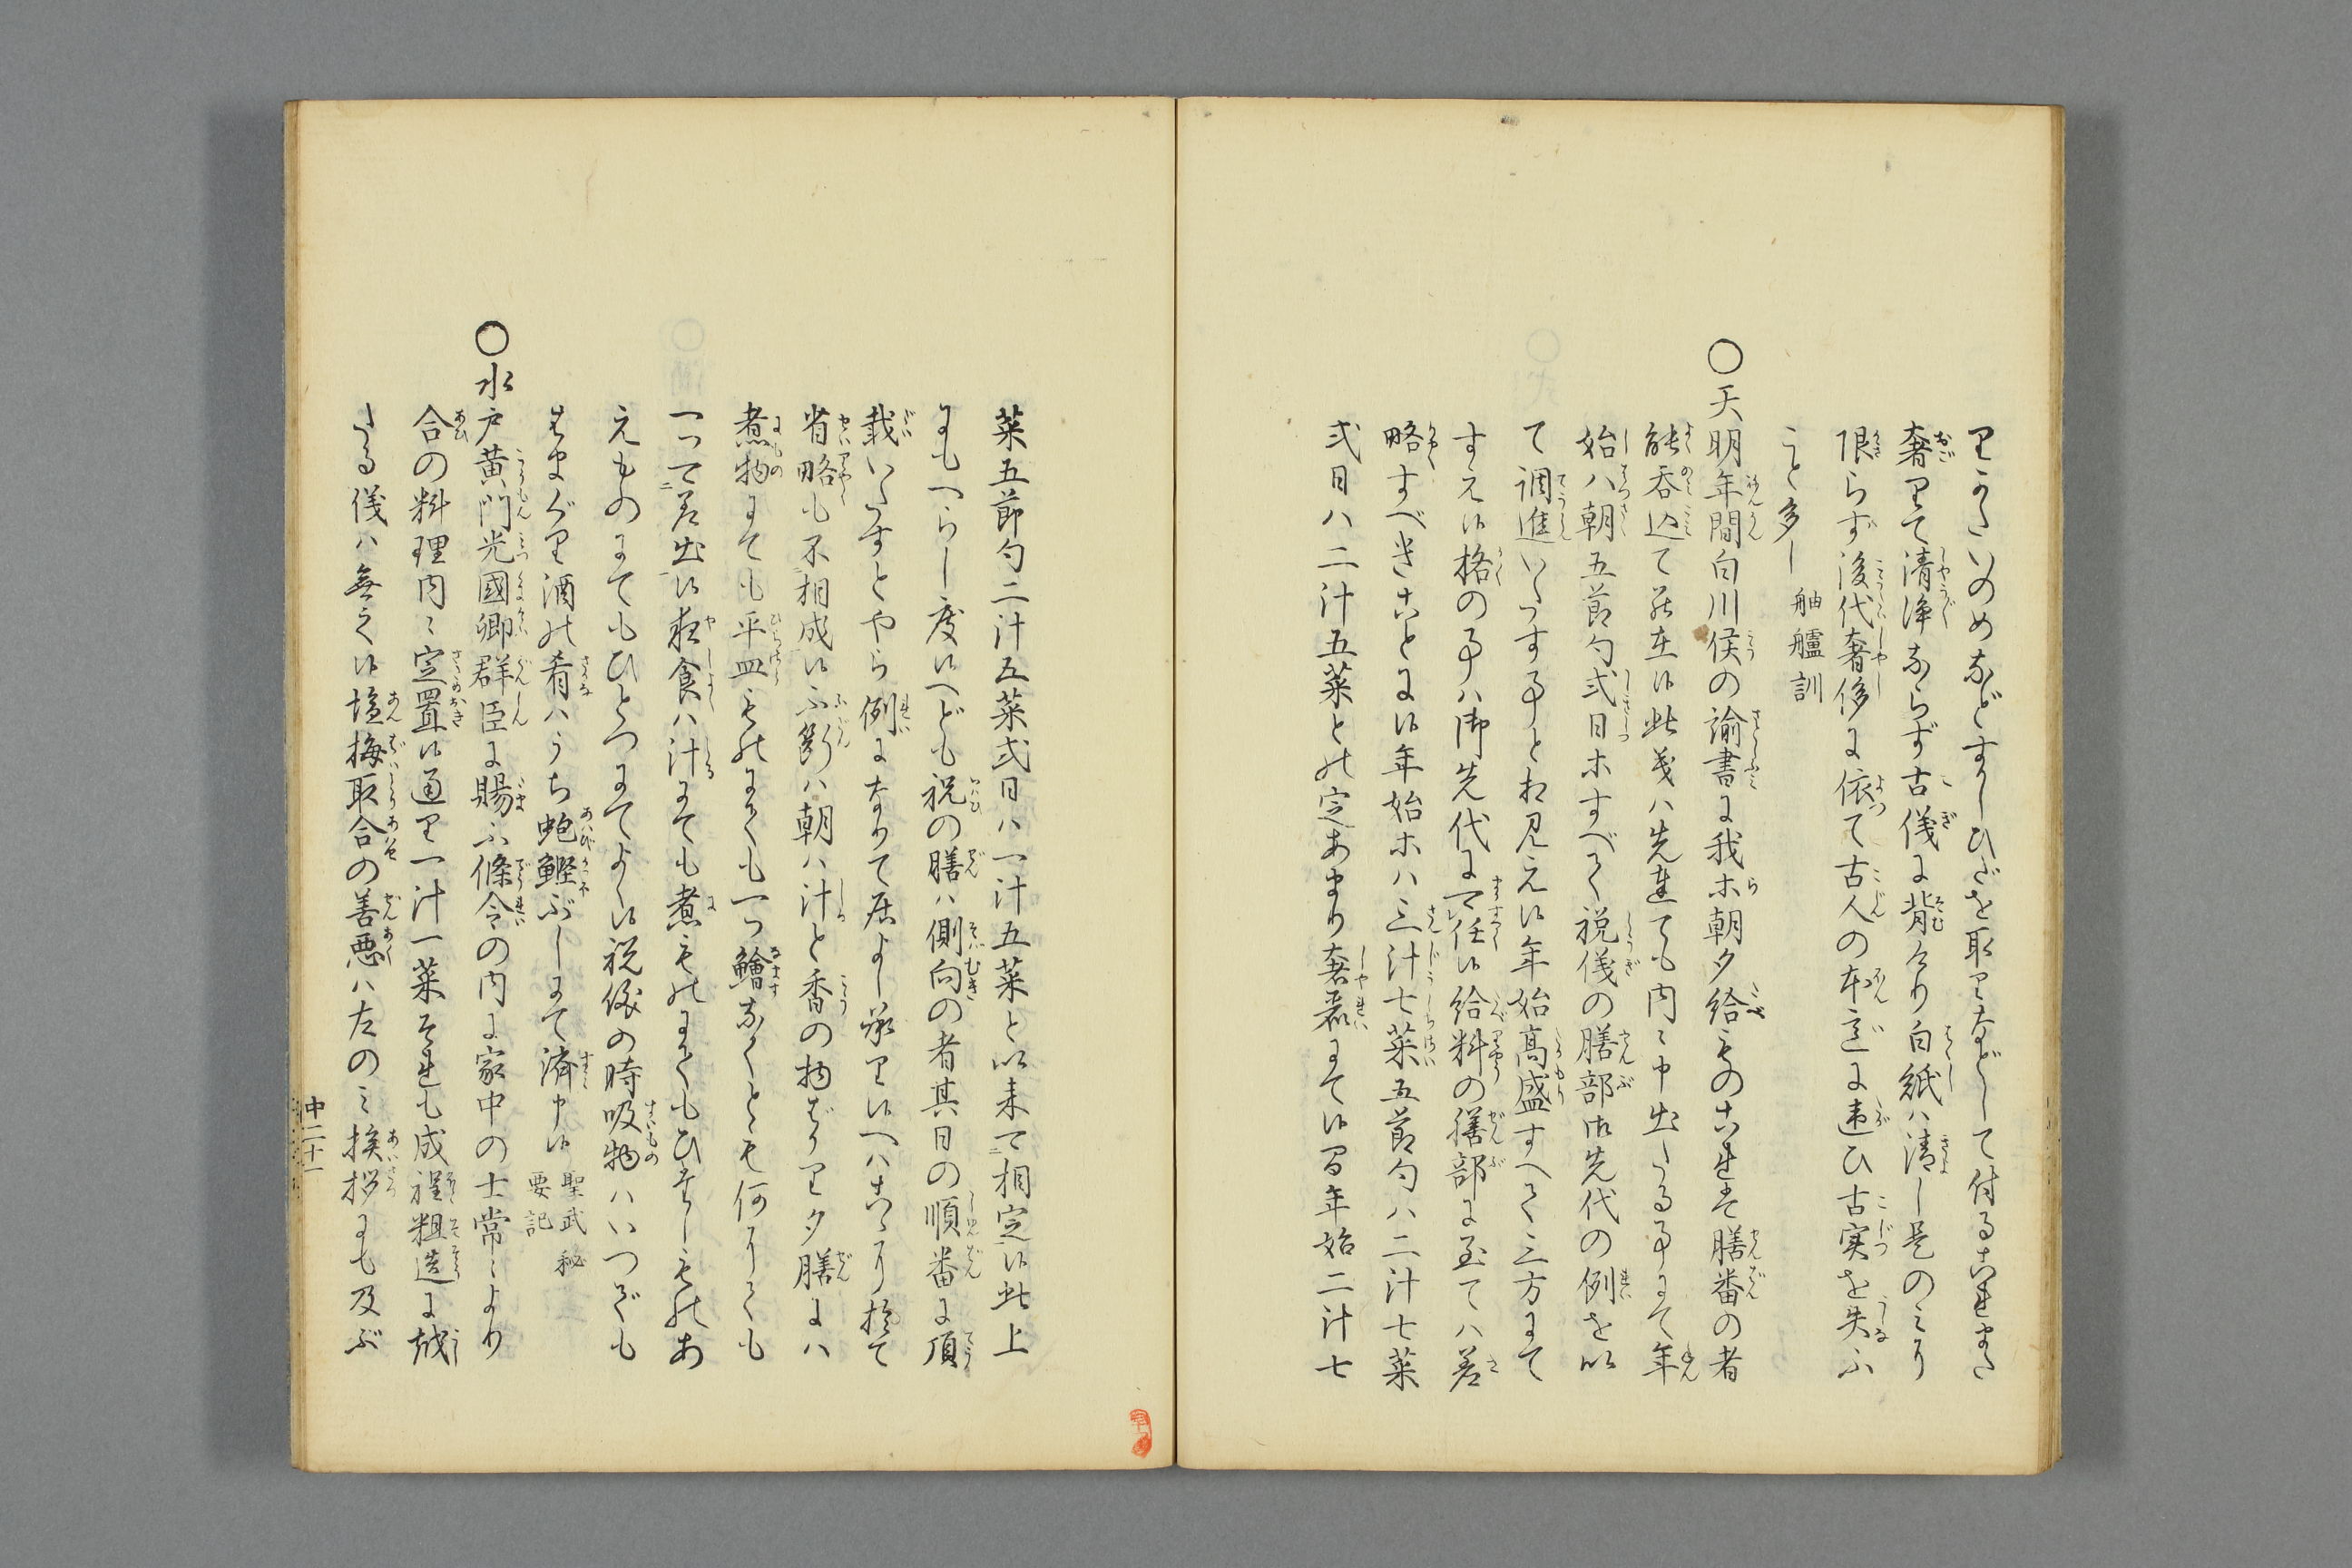 奢りて清浄ならず古儀に背けり白紙は清し是のみに
限らず後代奢侈に依つて古人の本意に違ひ古実を失ふ
こと多し 舳艫訓
〇天明年間白川侯の諭書に我等朝夕給ものこれは膳番の者
能呑込て罷在候此義ハ先達ても内々申出たる事にて年
始ハ朝五節句式日等すべて祝儀の膳部御先代の例を以
て調進いたす事と相見え候年始高盛すへて三方にて
すえ候格の事ハ御先代に可任候給料の膳部に至てハ差
略すべきことに候年始等ハ三汁七菜五節句ハ二汁七菜
式日ハ二汁五菜との定あまり奢麗にて候間年始二汁七
菜五節句二汁五菜式日ハ一汁五菜と以来可相定候此上
にもへらし度候へども祝の膳ハ側向の者其日の順番に頂
戴いたすとやら例になりて居よし承り候へハあ
省略も不相成候不断ハ朝ハ汁と香の物ばかり夕膳にハ
煮物にても平皿ものにても一つ鱠なくとも何にても
一つ可差出候夜食ハ汁にても煮ものにてもひたしものあ
えものにてもひとつにてよく候祝儀の時吸物ハいつぞも
はまぐり酒の肴ハうち鮑鰹ぶしにて済申候 聖武秘
要記
〇水戸黄門光國卿群臣に賜ふ條令の内に家中の士常々より
合の料理内々定置候通り一汁一菜それも成程粗造に越
たる儀ハ無之候塩梅取合の善悪ハ左のミ挨拶にも及ぶ
中二十一